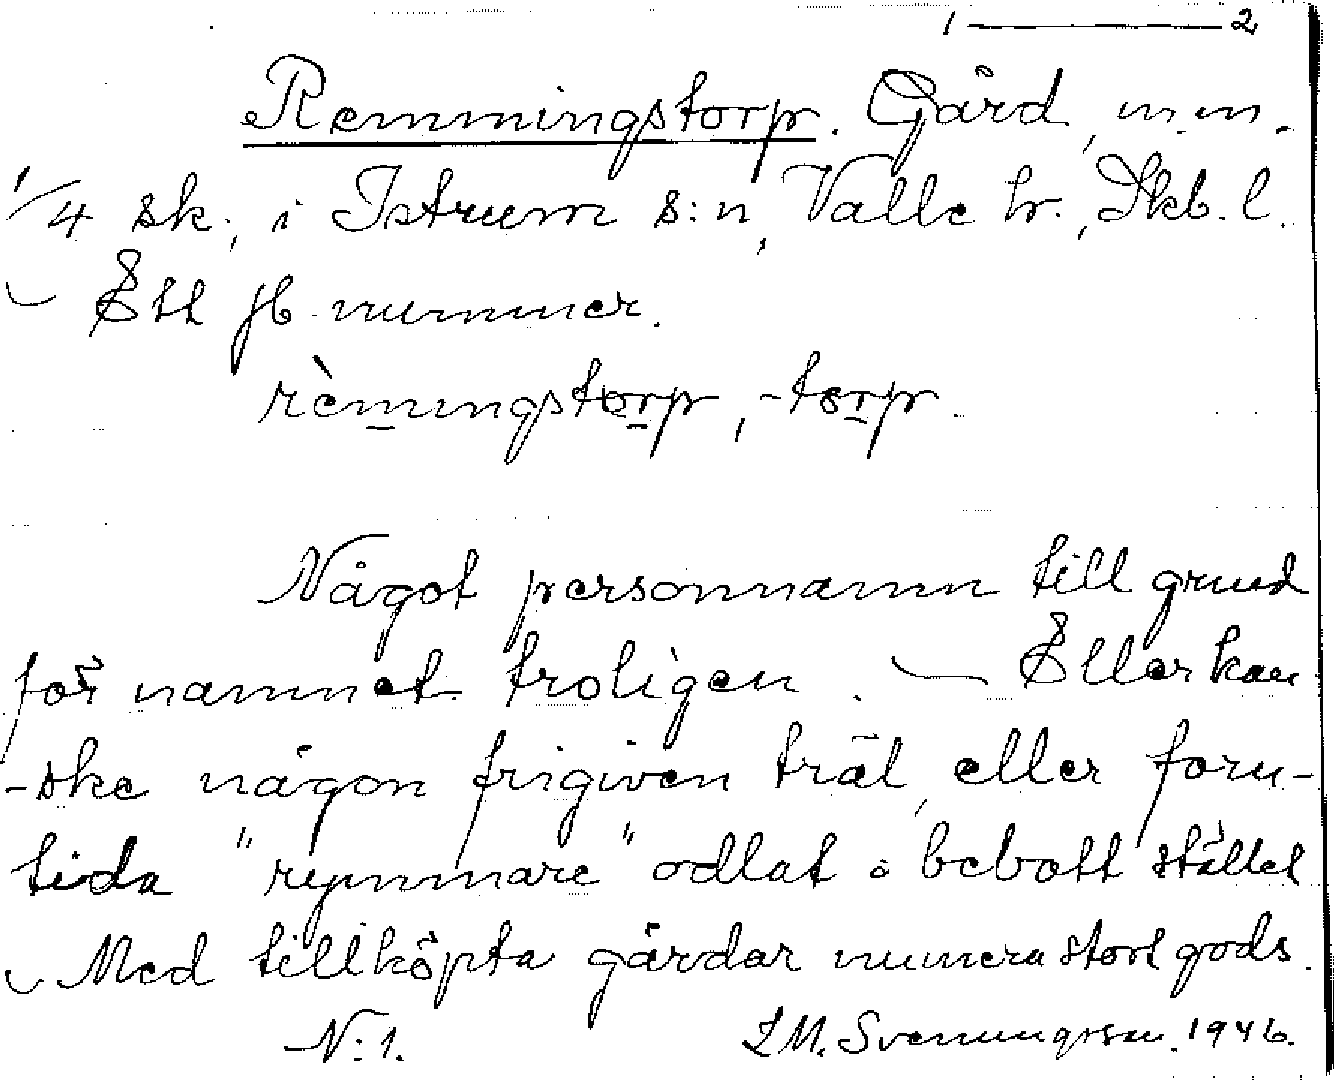 1 ——— 2
Remmingstorp. Gård, m.m.
1/4 sk., i Istrum s:n, Valle hr., Skb. l.
– Ett jb. nummer.
rèmingstorp, -torp.
Något personnamn till grund
för namnet troligen. — Eller kan
-ske någon frigiven träl, eller forn-
tida "rymmare" odlat o bebott stället
– Med tillköpta gårdar numera stort gods.
N:1. Z.M. Svenungsson. 1946.